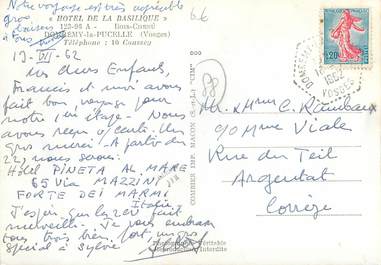 Notre voyage est très agréable
gros
baisers
à tous
« HOTEL DE LA BASILIQUE »
123-96 A - Bois-Chenu
DOMREMY-la-PUCELLE (Vosges)
Téléphone : 10 Coussey
19-VI-62
Mes chers Enfants,
Francis et moi avons
fait bon voyage pour
notre 1re étape. Nous
avons reçu carte. Un
gros merci. A partir du
22, nous serons :
Hôtel PINETA AL MARE
65 Via MAZZINI
FORTE DEI MARMI
Italie
J'espère que les
merveille. Je vous embrasse
tous très bien, fort, un gros
spécial à Sylvie
COMBIER IMP. MACON (S.-et-L.) "CIM"
Photographie Véritable
Interdite
0,20
1962
VOSGES
Mr. & Mme C. Rimbaux
90 Mme Viale
Rue du Teil
Argentat
Corrèze